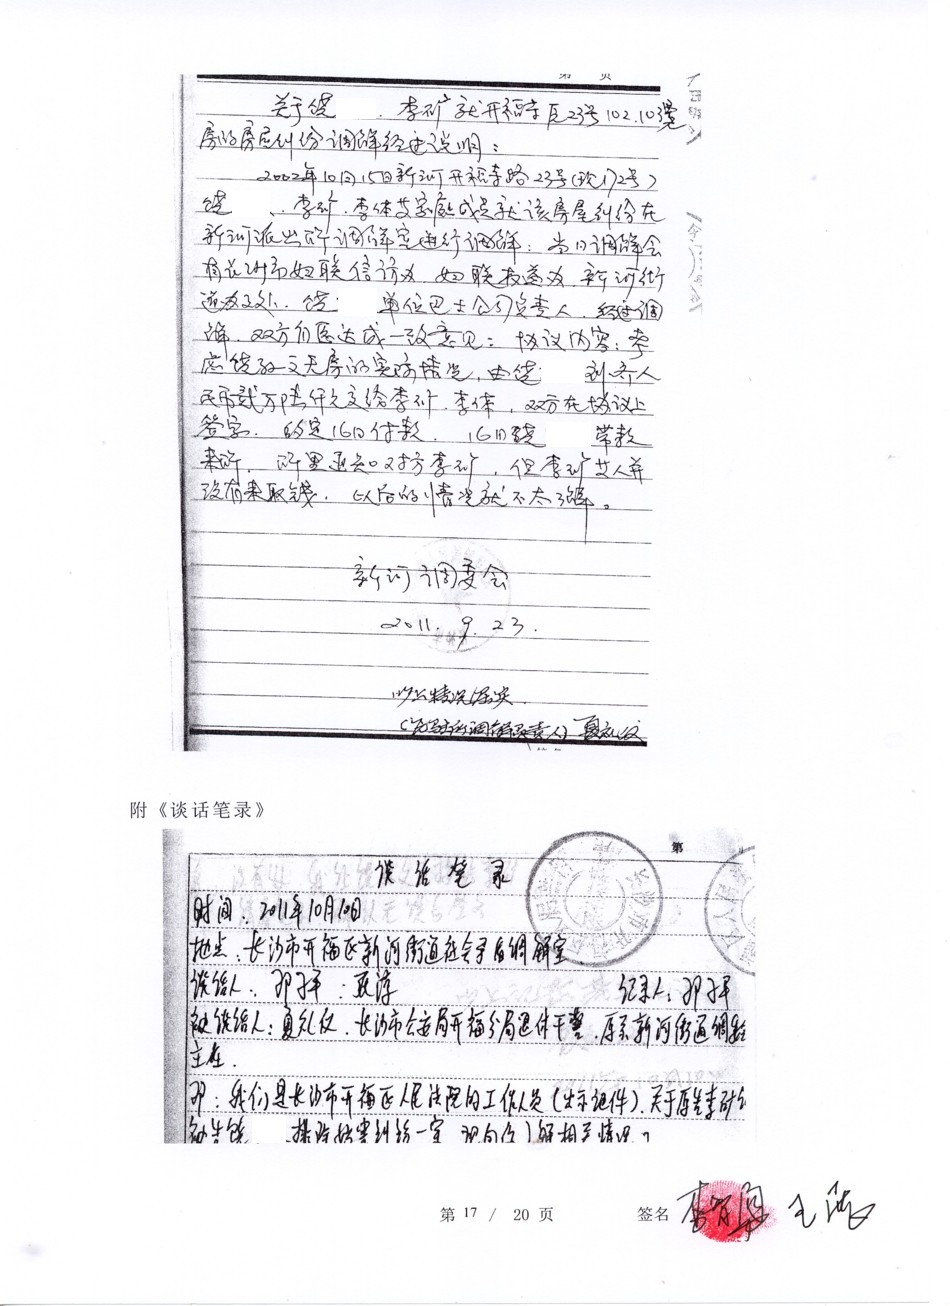 第 页
关于饶 、李矿就开福寺后23号102.103号
房的房屋纠纷调解经过说明:
2002年10月15日新河开福寺路23号(现172号)
饶 、李矿、李体艾家庭成员就该房屋纠纷在
新河派出所调解室进行调解:当日调解会
有长沙市妇联信访办、妇联权益办、新河街
道办事处、饶 单位巴士公司负责人、经过调
解,双方自愿达成一致意见:协议内容:考
虑饶 无房的实际情况,由饶 出人
民币贰万陆仟元交给李矿、李体,双方在协议上
签字。约定16日付款。16日饶 带款
来所,所里通知对方李矿,但李矿等人并
没有来取钱。以后的情况就不太了解。
新河调委会
2011.9.23.
以上情况属实
(派出所调解负责人)夏礼仪
附《谈话笔录》
第
谈话笔录
时间:2011年10月10日
地点:长沙市开福区新河街道社会矛盾调解室
谈话人:邓子平、 记录人:邓子平
被谈话人:夏礼仪、长沙市公安局开福分局退休干警,原系新河街道调委
主任.
邓:我们是长沙市开福区人民法院的工作人员(出示证件).关于原告李矿
被告饶 排除妨害纠纷一案,现向你了解相关情况?
第 17 / 20 页 签名